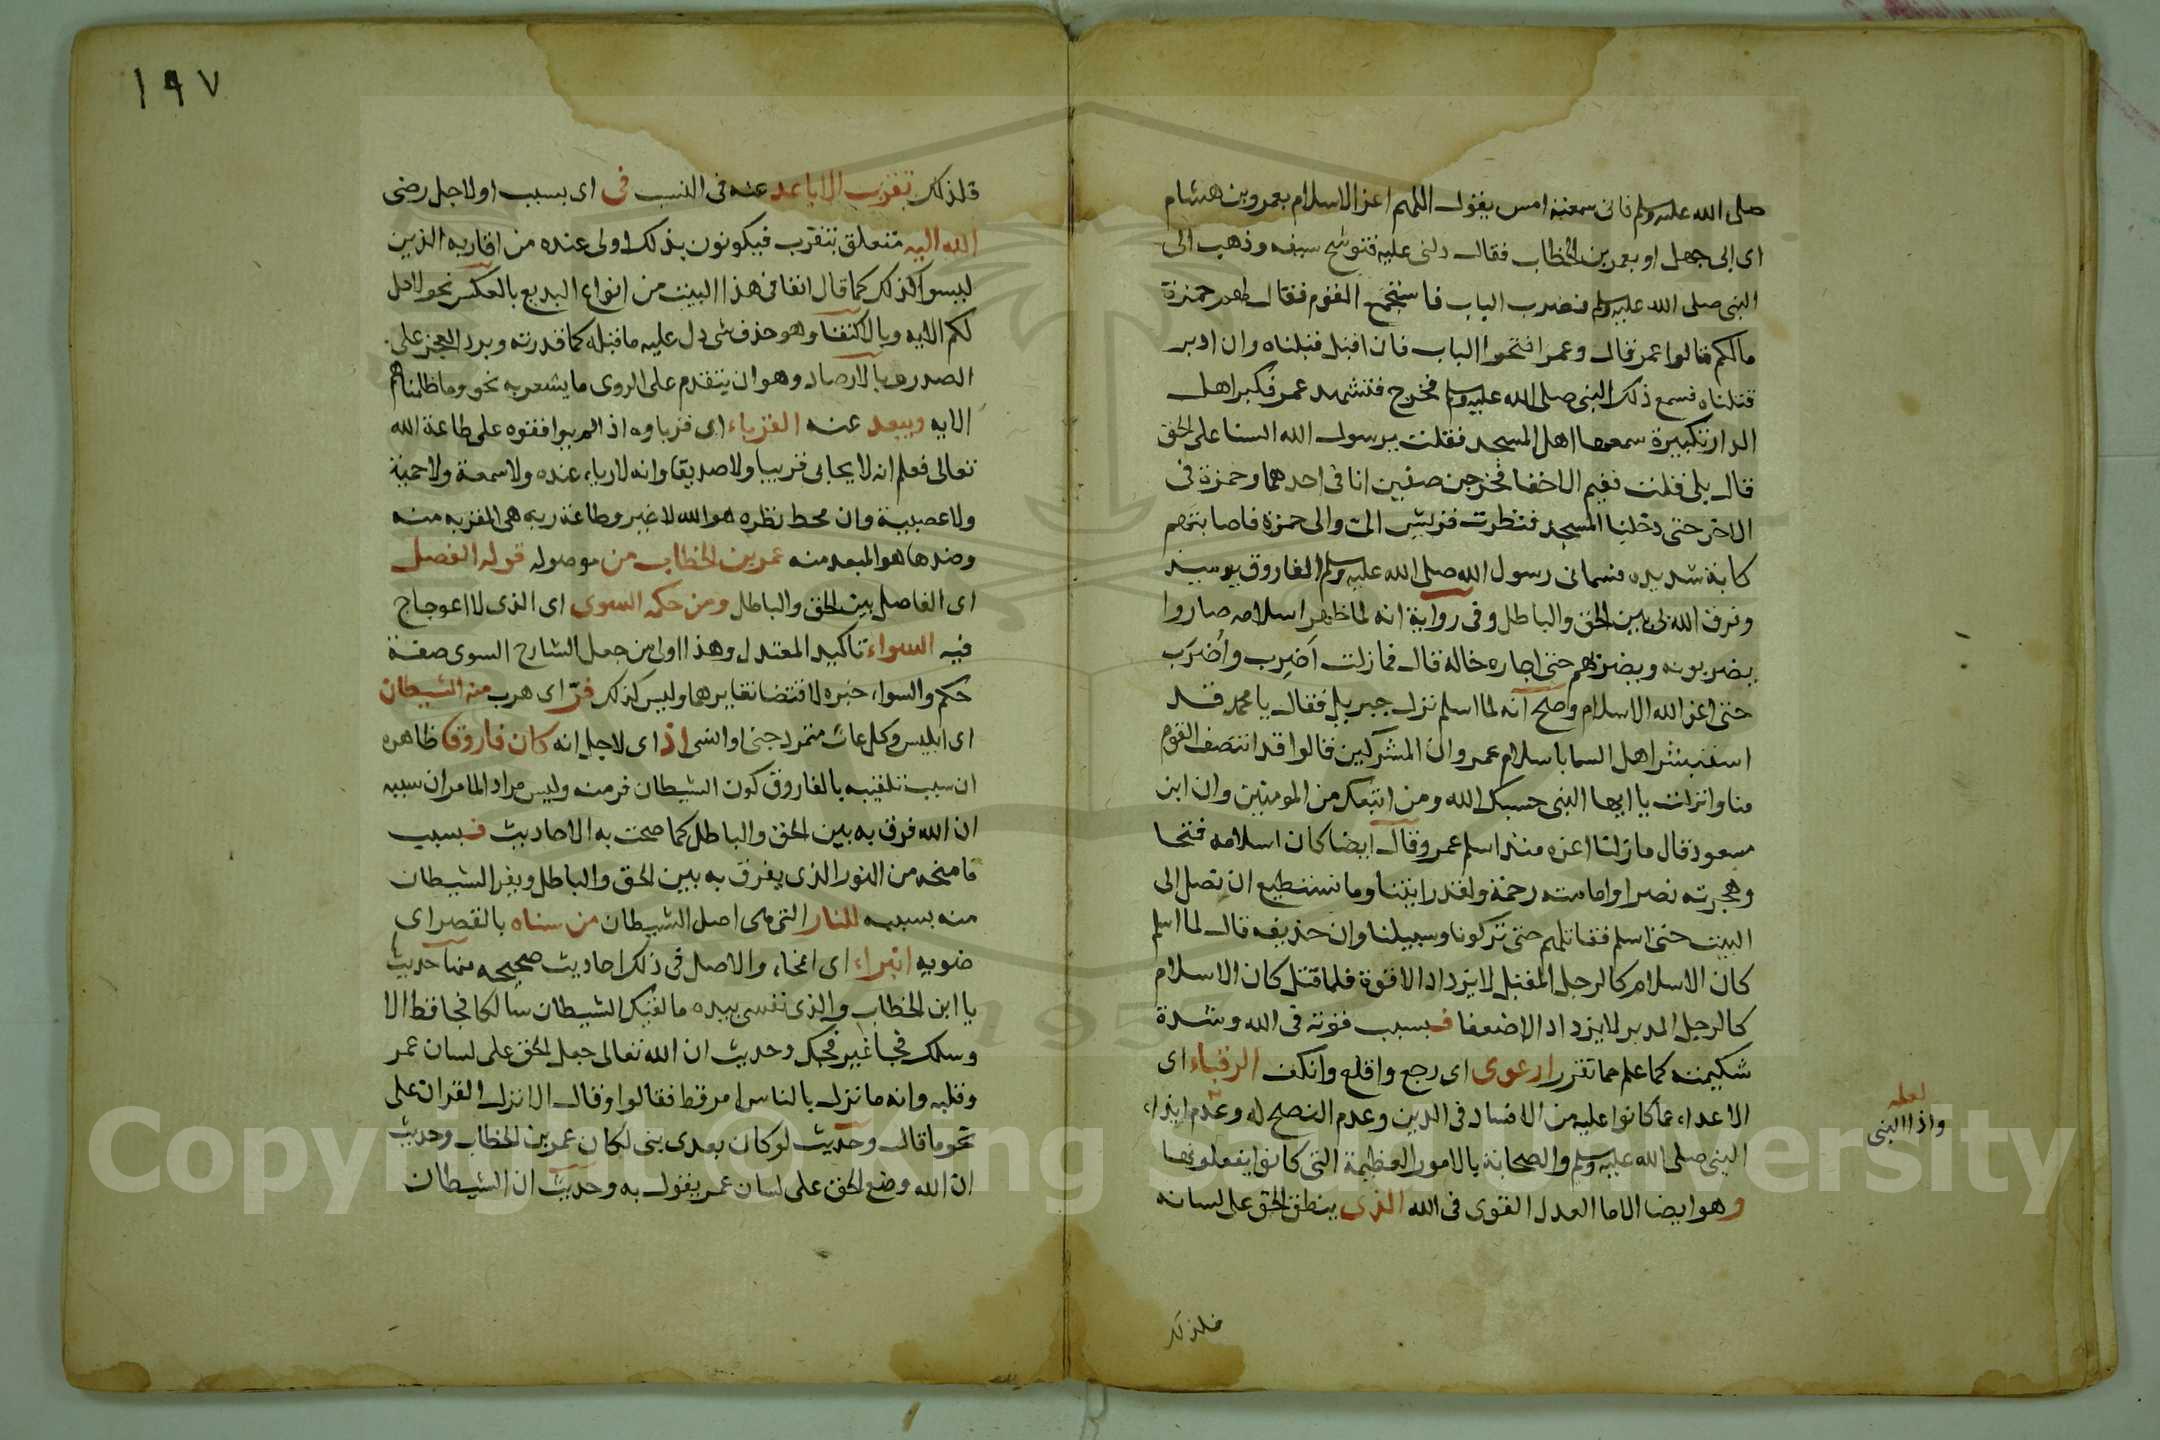 صلى الله عليه وسلم فانى سمعته امس يقول اللهم اعز الاسلام بعمرو بن هشام
اى ابى جهل او بعمر بن الخطاب فقال دلنى عليه فتوشح سيفه وذهب الى
النبى صلى الله عليه وسلم فضرب الباب فاستجمع القوم فقال لهم حمزة
مالكم قالوا عمر قال وعمر افتحوا الباب فان اقبل قبلناه وان ادبر
قتلناه فسمع ذلك النبى صلى الله عليه وسلم فخرج فتشهد عمر فكبر اهل
الدار تكبيرة سمعها اهل المسجد فقلت يرسول الله السنا على الحق
قال بلى قلت ففيم الاخفا فخرجن صفين انا فى احدهما وحمزة فى
الاخر حتى دخلنا المسجد فنظرت قريش الى والى حمزة فاصابتهم
كابة شديده فسمانى رسول الله صلى الله عليه وسلم الفاروق يوميذ
وفرق الله بى بين الحق والباطل وفى رواية انه لما ظهر اسلامه صاروا
يضربونه ويضربهم حتى اجاره خاله قال فما زلت اضرب واضرب
حتى اعز الله الاسلام وصح انه لما اسلم نزل جبريل فقال يا محمد قد
استبشر اهل السما باسلام عمر وان المشركين قالوا قد انتصف القوم
منا وانزلت يا ايها النبى حسبك الله ومن اتبعك من المومنين وان ابن
مسعود قال مازلنا اعزه منذ اسلم عمر وقال ايضا كان اسلامه فتحا
وهجرته نصرا وامامته رحمة ولقد رايتنا وما نستطيع ان نصل الى
البيت حتى اسلم فقاتلهم حتى تركونا وسبيلنا وان حذيفه قال لما اسلم
كان الاسلام كالرجل المقبل لا يزداد الا قوة فلما قتل كان الاسلام
كالرجل المدبر لا يزداد الا ضعفا فبسبب قوته فى الله وشدة
شكيمته كما علم مما تقرر ارعوى اى رجع واقلع وانكف الرقباء اى
الاعداء عما كانوا عليه من الافساد فى الدين وعدم النصح له وعدم ايذاء
النبى صلى الله عليه وسلم والصحابة بالامور العظيمة التى كانوا يفعلونها
وهو ايضا الاما العدل القوى فى الله الذى ينطق الحق على لسانه
لعله
واذا النبى
فلذلك
١٩٧
فلذلك تقرب الاباعد عنه فى النسب فى اى بسبب او لاجل رضى
الله اليه متعلق بتقرب فيكونون بذلك اولى عنده من اقاربه الذين
ليسوا كذلك كما قال انفا فى هذا البيت من انواع البديع بالعكس نحو لا هن
لكم الايه وبالاكتفا وهو حذف شى دل عليه ما قبله كما قدرته وبرد العجز على
الصدر وبالارصاد وهو ان يتقدم على الروى ما يشعر به نحو وما ظلمناهم
الايه ويبعد عنه القرباء اى قرباوه اذ الم يوافقوه على طاعة الله
تعالى فعلم انه لا يحابى قريبا ولا صديقا وانه لا رياء عنده ولا سمعة ولا حمية
ولا عصبية وان محط نظره هو الله لا غير وطاعة ربه هى المقربه منه
وضدها هو المبعد منه عمر بن الخطاب من موصوله قوله الفصل
اى الفاصل بين الحق والباطل ومن حكمه السوى اى الذى لا اعوجاج
فيه السواء تاكيد المعتدل وهذا اولى من جعل الشارح السوى صفة
حكم والسواء خبره لاقتضا تغايرهما وليس كذلك فرّ اى هرب منه الشيطان
اى ابليس وكل عات متمرد جنى او انسى اذ اى لاجل انه كان فاروقا ظاهره
ان سبب تلقيبه بالفاروق كون الشيطان فر منه وليس مراد الما مر ان سببه
ان الله فرق به بين الحق والباطل كما صحت به الاحاديث فبسبب
ما منحه من النور الذى يفرق به بين الحق والباطل ويفر الشيطان
منه بسببه للنار التى هى اصل الشيطان من سناه بالقصر اى
ضويه انبراء اى امحاء والاصل فى ذلك احاديث صحيحه منها حديث
يا ابن الخطاب والذى نفسى بيده ما لقيك الشيطان سالكا فجا قط الا
وسلك فجا غير فجك وحديث ان الله تعالى جعل الحق على لسان عمر
وقلبه وانه ما نزل بالناس امر قط فقالوا وقال الا نزل القران على
نحو ما قال وحديث لو كان بعدى نبى لكان عمر بن الخطاب وحديث
ان الله وضع الحق على لسان عمر يقول به وحديث ان الشيطان
Copyright © King Saud University